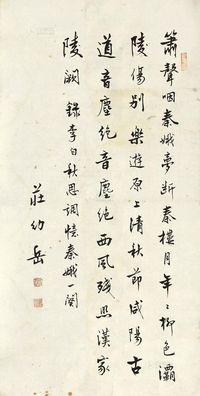 簫聲咽秦娥夢斷秦樓月年〻柳色灞
陵傷別樂遊原上清秋節咸陽古
道音塵絕音塵絕西風殘照漢家
陵闕錄李白秋思調憶秦娥一闋
莊幼岳